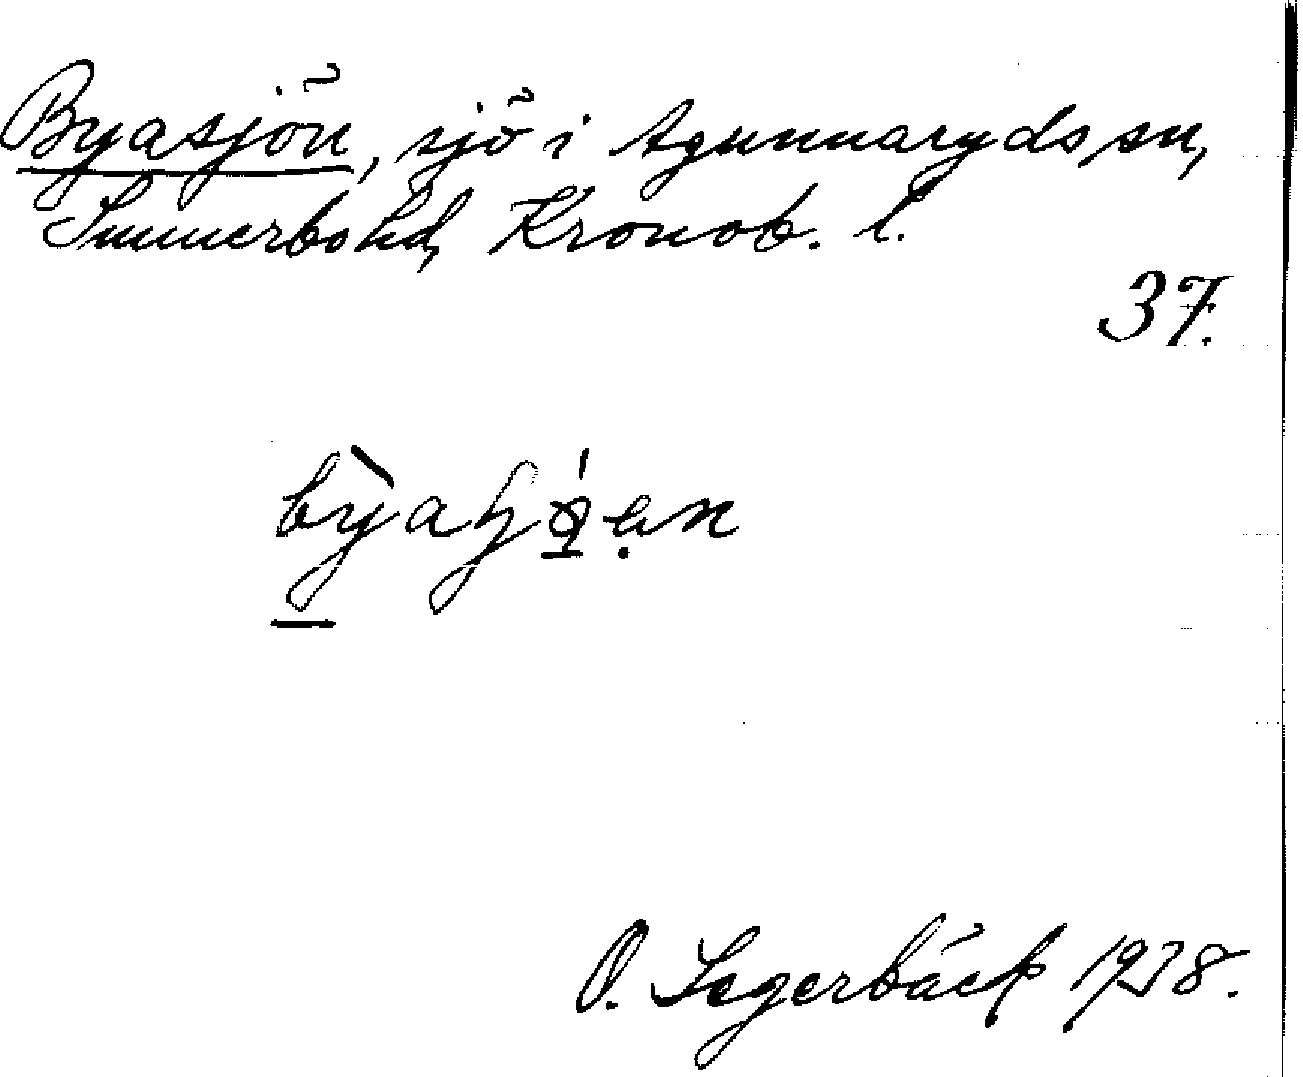 Byasjön, sjö i Agunnaryds sn,
Sunnerbo hd, Kronob. l.
37.
O. Segerbäck 1938.